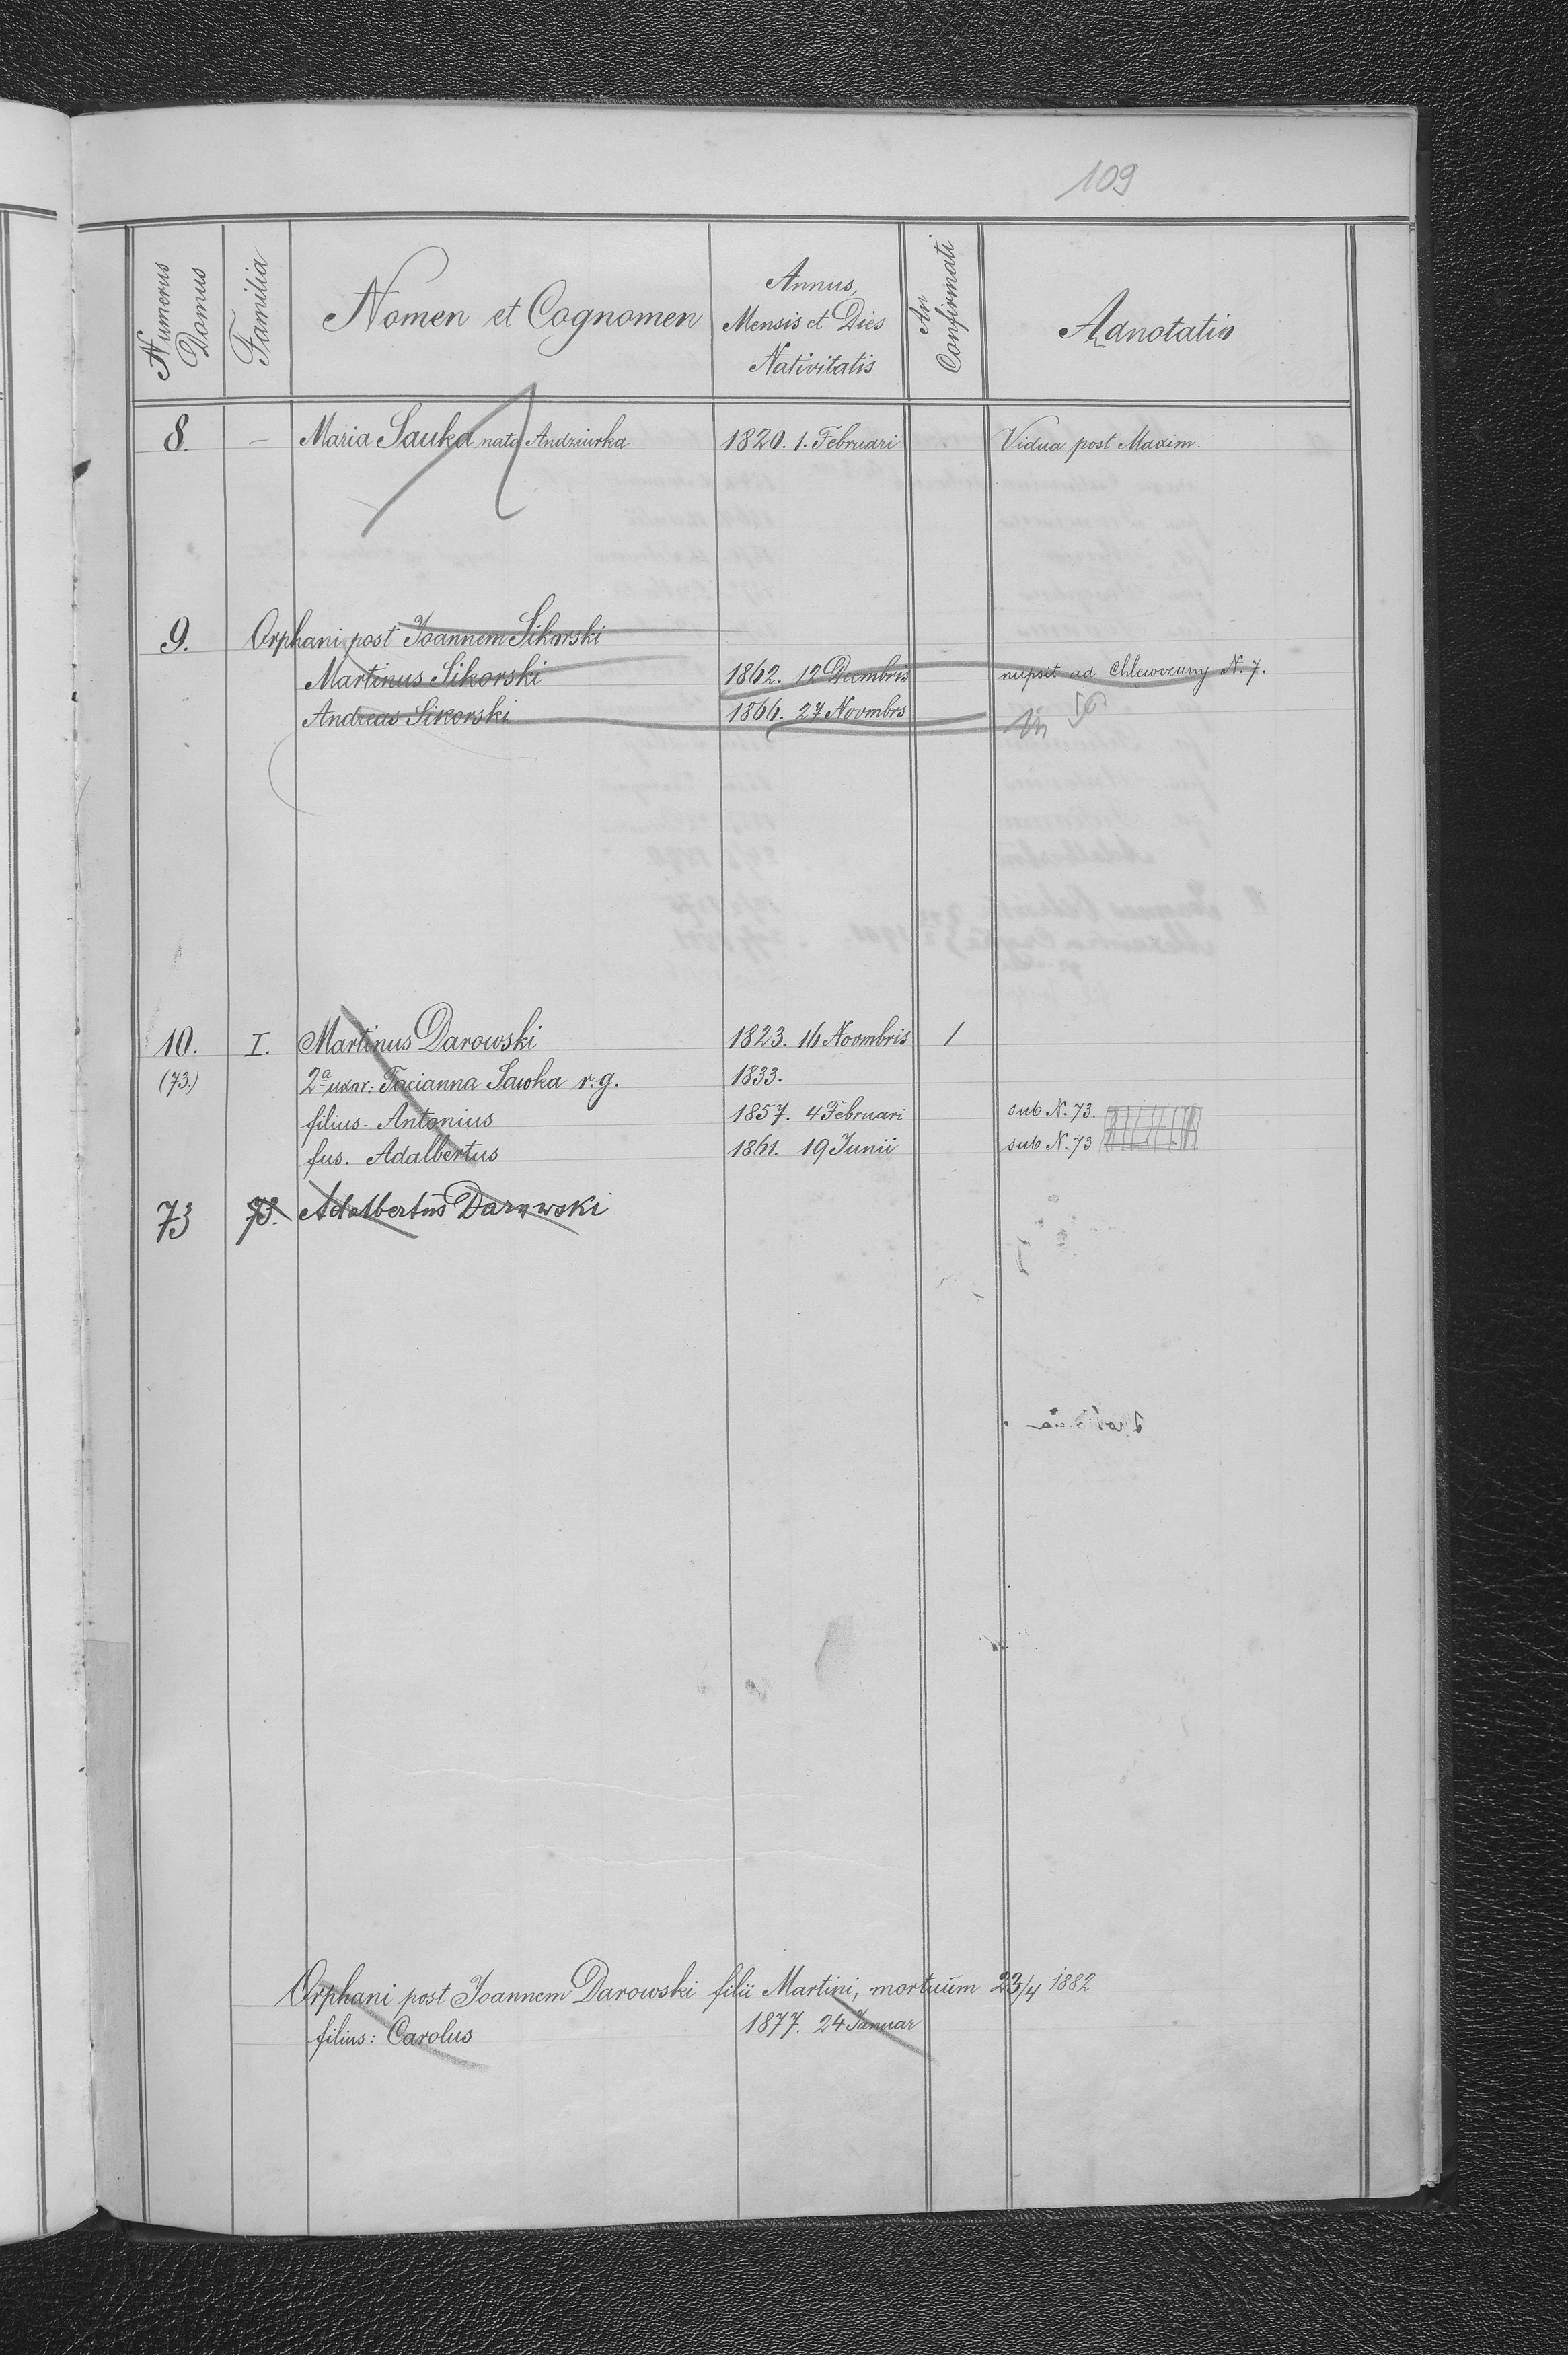 109
Numerus Domus Familia Nomen et Cognomen Annus, Mensis et Dies Nativitatis An Confirmati Adnotatio
8. – Maria Sauka nata Andziurka 1820. 1. Februari Vidua post Maxim.
9. Orphani post Joannem Sikorski
Martinus Sikorski 1862. 12 Decmbris nupsit ad Chlewczany N. 7.
Andreas Sikorski 1866. 27 Novmbrs
10. I. Martinus Darowski 1823. 16 Novmbris 1
(73.) 2a uxor: Tacianna Sawka r. g. 1833.
filius - Antonius 1857. 4 Februari sub N. 73.
fus. Adalbertus 1861. 19 Junii sub N. 73
73 73. Adalbertus Darowski
Orphani post Joannem Darowski filii Martini, mortuum 23/4 1882
filius: Carolus 1877. 24 Januar